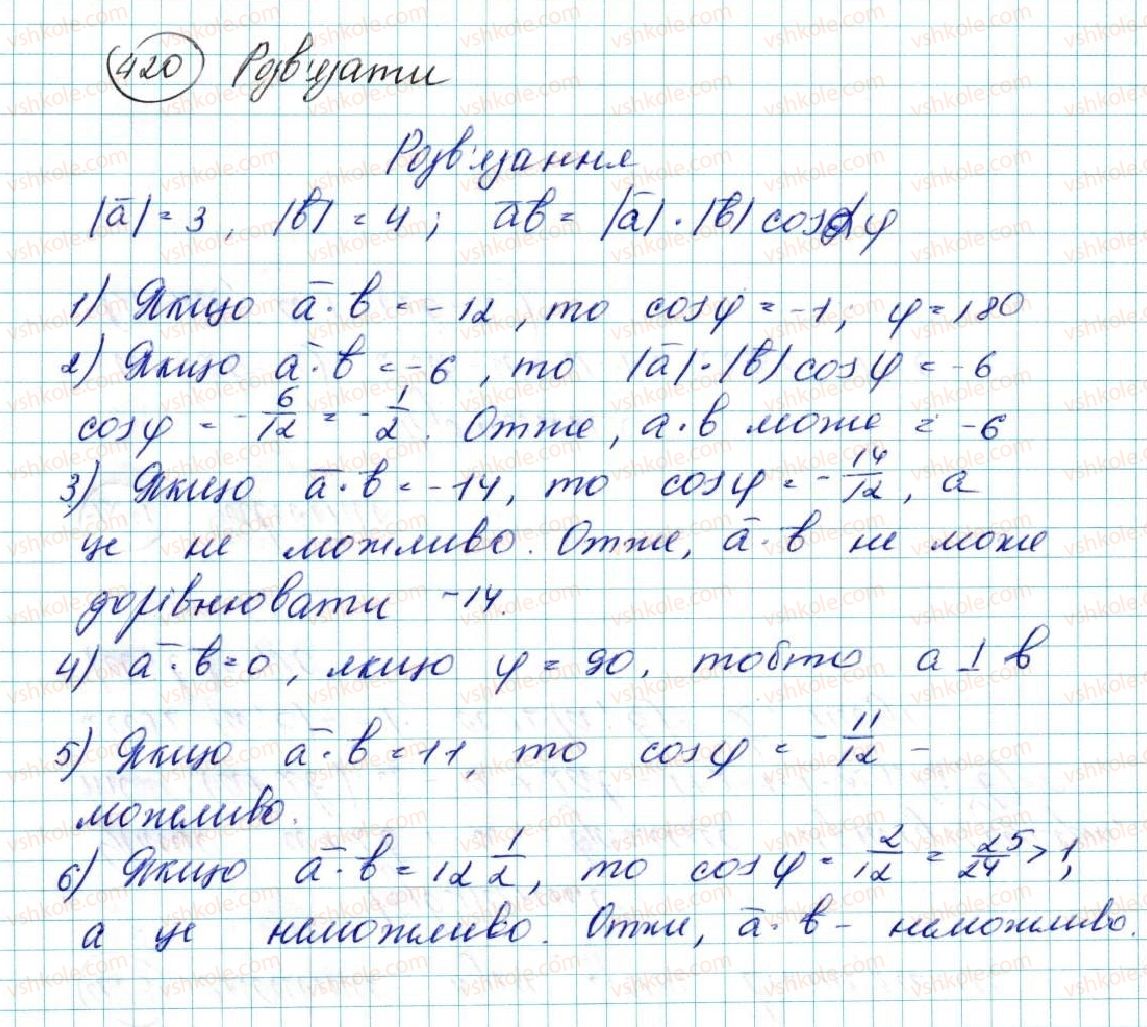 420 Розв'язати
Розв'язання
|a̅| = 3, |b̅| = 4; a̅b̅ = |a̅|·|b̅| cos φ
1) Якщо a̅·b̅ = -12, то cosφ = -1; φ = 180
2) Якщо a̅·b̅ = -6, то |a̅|·|b̅| cosφ = -6
cosφ = -6/12 = -1/2. Отже, a·b може = -6
3) Якщо a̅·b̅ = -14, то cosφ = -14/12, а
це не можливо. Отже, a̅·b̅ не може
дорівнювати -14.
4) a̅·b̅ = 0, якщо φ = 90, тобто a ⊥ b
5) Якщо a̅·b̅ = 11, то cosφ = -11/12 -
можливо.
6) Якщо a̅·b̅ = 12 1/2, то cosφ = 2/12 = 25/24 > 1,
а це неможливо. Отже, a̅·b̅ - неможливо.